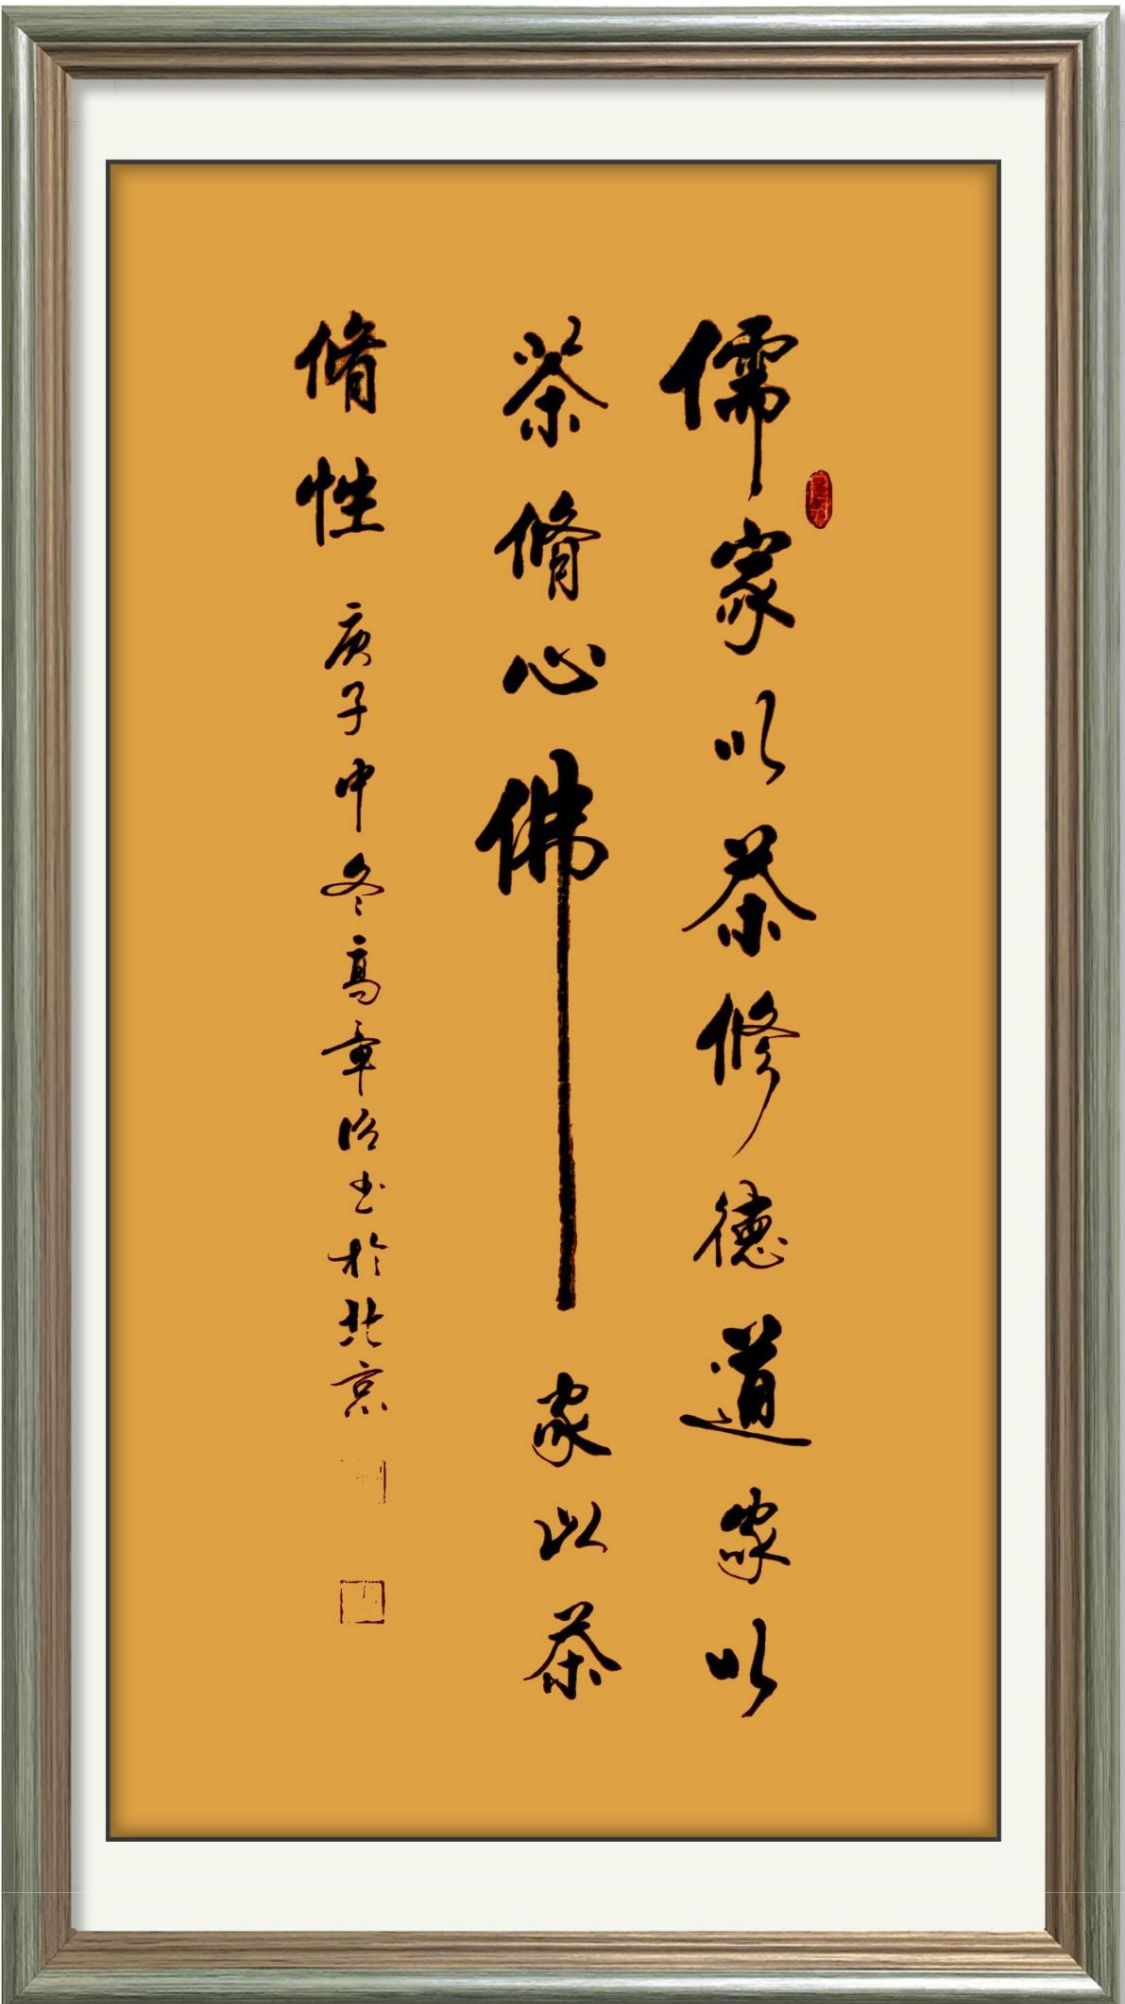 儒家以茶修德道家以
茶脩心佛家以茶
脩性
庚子中冬高章治书於北京